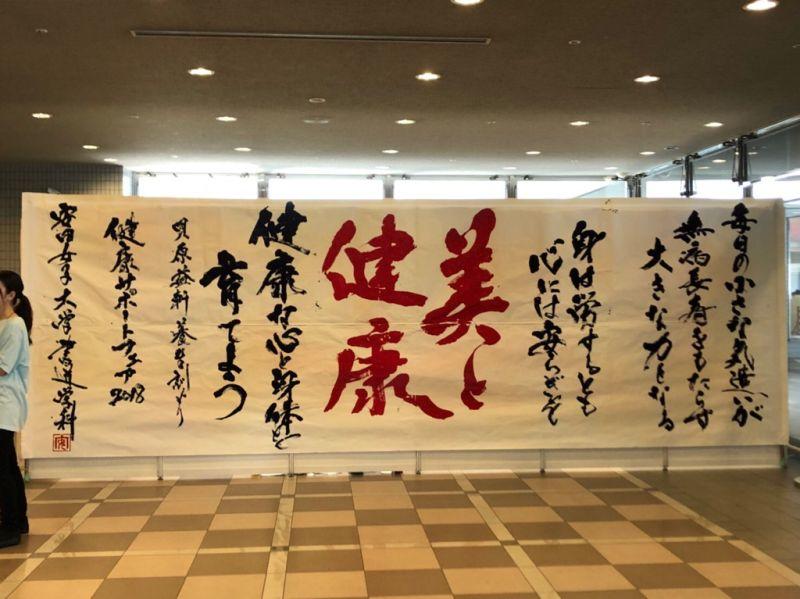 毎日の小さな気遣いが
無病長寿をもたらす
大きな力となる
身は労するとも
心には安らぎを
美と
健康
健康な心と身体を
育てよう
貝原益軒 養生訓より
健康サポートフェア
2018
安田女子大学書道学科
安